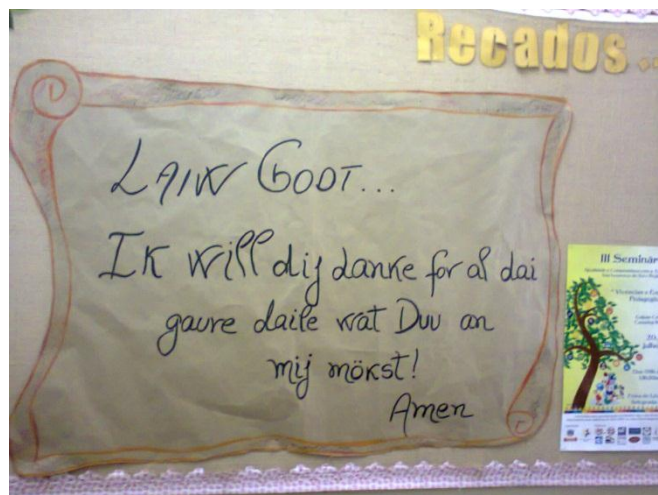 Recados...
LAIW GODT...
IK will dij danke for al dai
gaure daile wat Duu an
mij möKst!
Amen
III Seminár